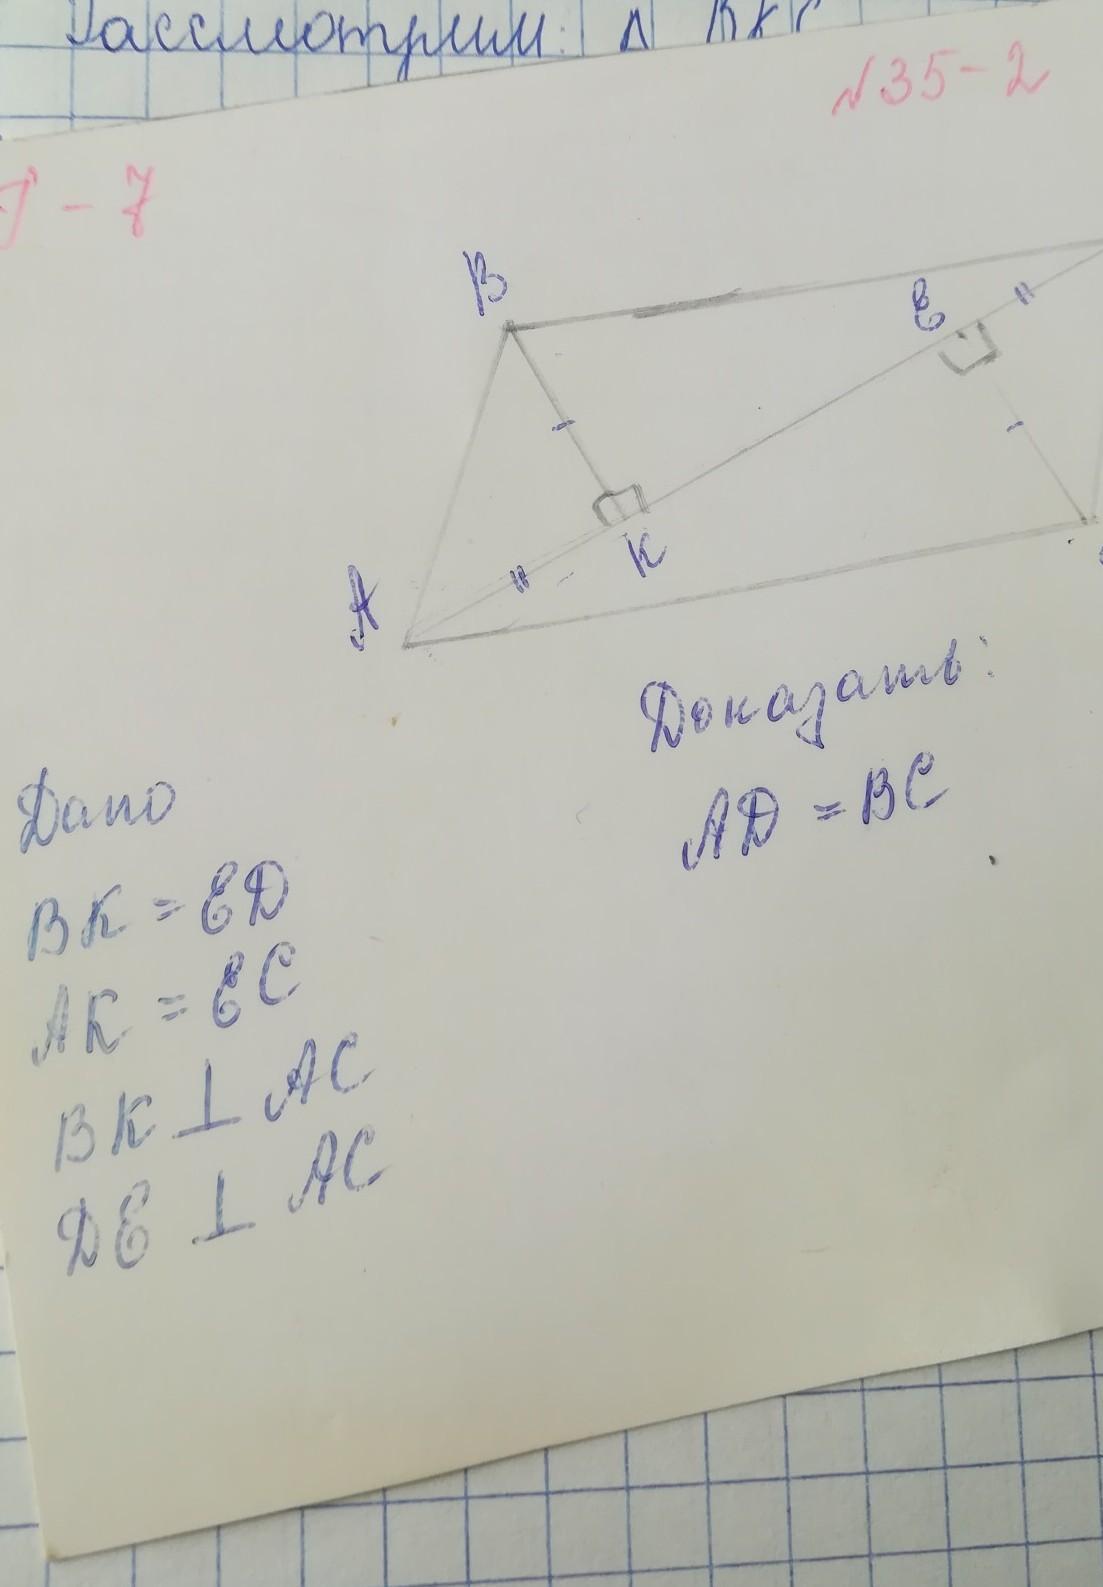 Рассмотрим: Δ BKC
№35-2
Г - 7
B
E
K
A
Доказать:
AD = BC
Дано
BK = ED
AK = EC
BK ⊥ AC
DE ⊥ AC